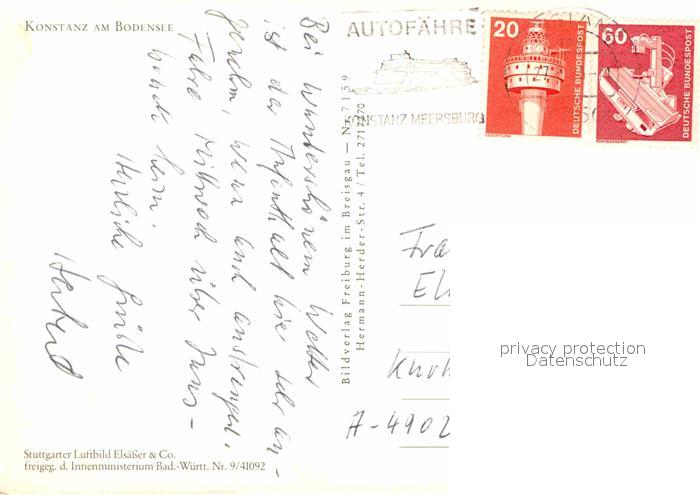 KONSTANZ AM BODENSEE
AUTOFÄHRE
KONSTANZ MEERSBURG
20
DEUTSCHE BUNDESPOST
LEUCHTTURM
60
DEUTSCHE BUNDESPOST
RÖNTGENGERÄT
Bei wunderschönem Wetter
ist der Aufenthalt hier sehr an-
genehm, wenn auch anstrengend.
Fahre Mittwoch über Inns-
bruck heim.
Herzliche Grüße
Herbert
Bildverlag Freiburg im Breisgau — Nr. 7159
Hermann-Herder-Str. 4 / Tel. 271 7270
Fra
El
A-4902
privacy protection
Datenschutz
Stuttgarter Luftbild Elsäßer & Co.
freigeg. d. Innenministerium Bad.-Württ. Nr. 9/41092